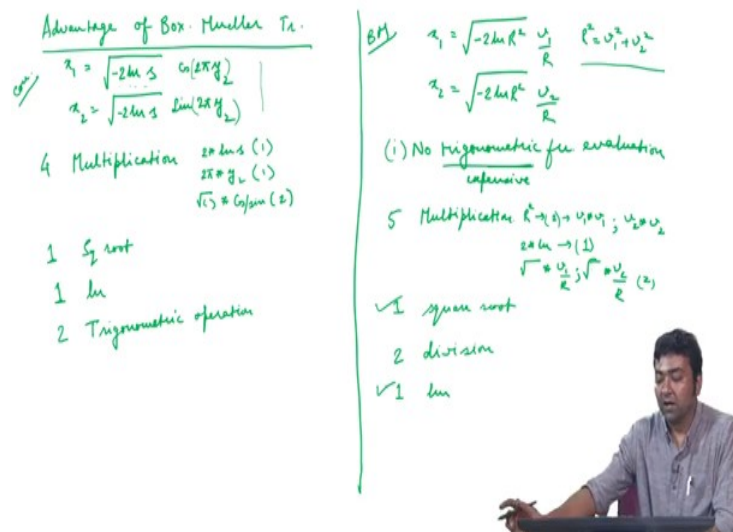 Advantage of Box-Mueller Tr.
Conv.
x₁ = √(-2 ln s) cos(2π y₂)
x₂ = √(-2 ln s) sin(2π y₂)
4 Multiplication 2* ln s (1)
2π * y₂ (1)
√( ) * Cos/sin (2)
1 Sq root
1 ln
2 Trigonometric operation
BM
x₁ = √(-2 ln R²) v₁/R R² = v₁² + v₂²
x₂ = √(-2 ln R²) v₂/R
(i) No trigonometric fn evaluation
expensive
5 Multiplication R² → (2) → v₁*v₁ ; v₂*v₂
2* ln → (1)
√ * v₁/R ; √ * v₂/R (2)
✓1 square root
2 division
✓1 ln